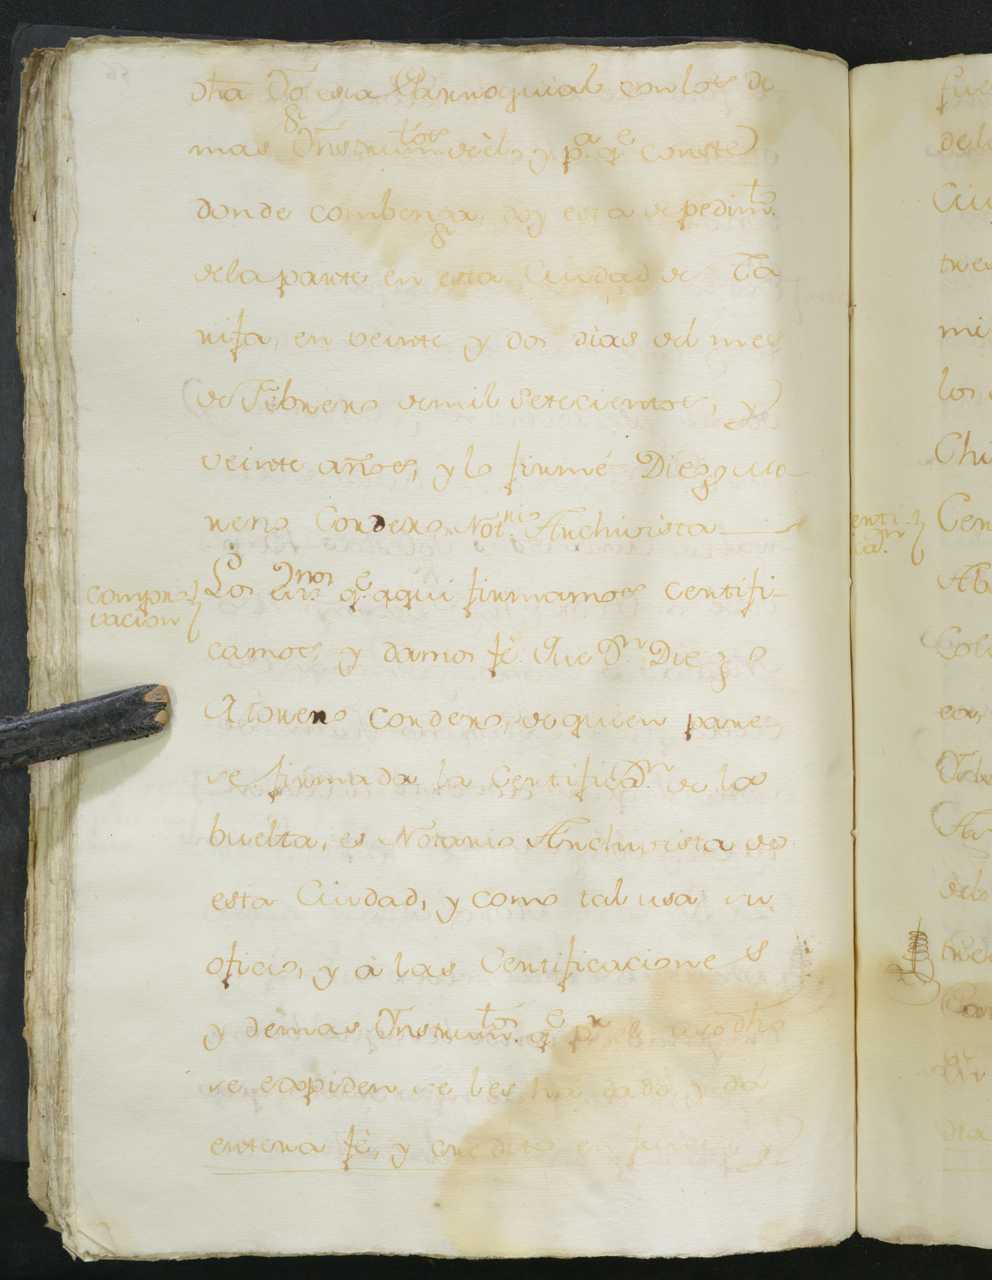 dha Yga. esa Parroquial con los de
mas Ynstrum.tos de ella, y p.a q.e conste
donde combenga, doy esta de pedim.to
de la parte en esta Ciudad de Ta
rifa, en veinte y dos dias del mes
de Febrero de mil setecientos, y
veinte años, y lo firmé Diego
Cordero Not.rio Archivista
compro
vacion
Los Ss.nos q.e aqui firmamos certifi
camos y damos fé. Que D.n Diego
Cordero, de quien pare
se firmada la Certificaz.n de la
buelta, es Notario Archivista de
esta Ciudad, y como tal usa su
oficio, y à las Certificaciones
y demas Ynstrum.tos q.e p.r el suso dho
se expiden se les ha dado, y dá
entera fé, y credito en juicio, y
fue
de la
Ciu
mi
los
Chi
Cer